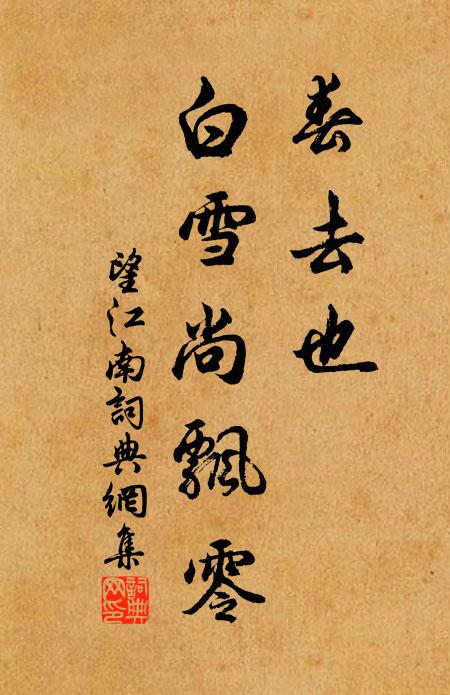 春去也
白雪尚飄零
望江南詞典網集
詞典
网印